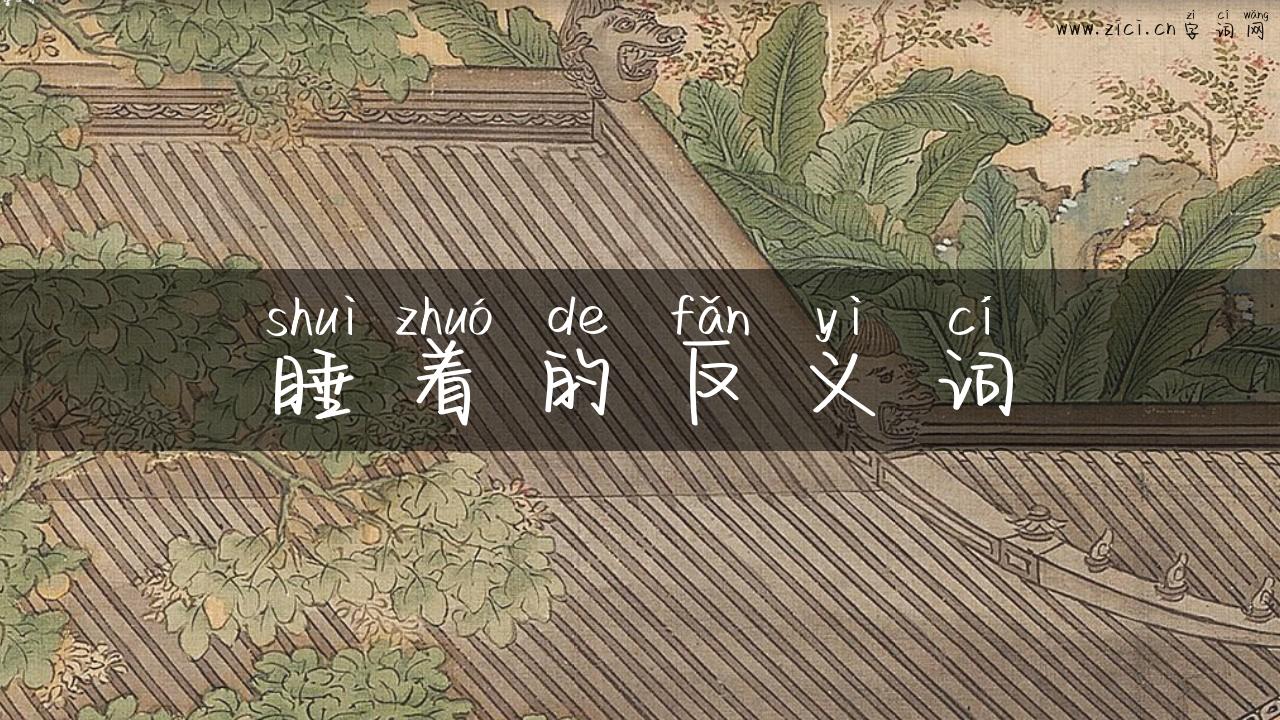 zì cí wǎng
www.zici.cn 字 词 网
shuì zhuó de fǎn yì cí
睡 着 的 反 义 词